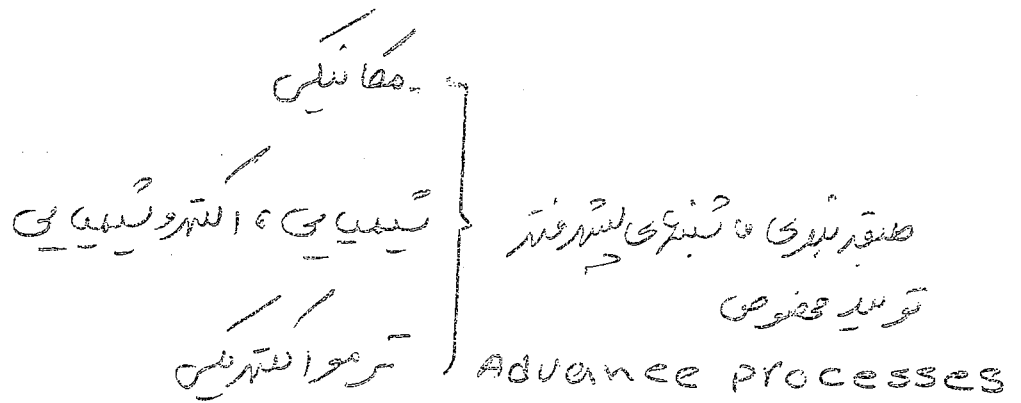 طبقه بندی ماشینهای پیشرفته
تولید مخصوص
Advance processes
- مکانیکی
شیمیایی، الکتروشیمیایی
ترموالکتریکی